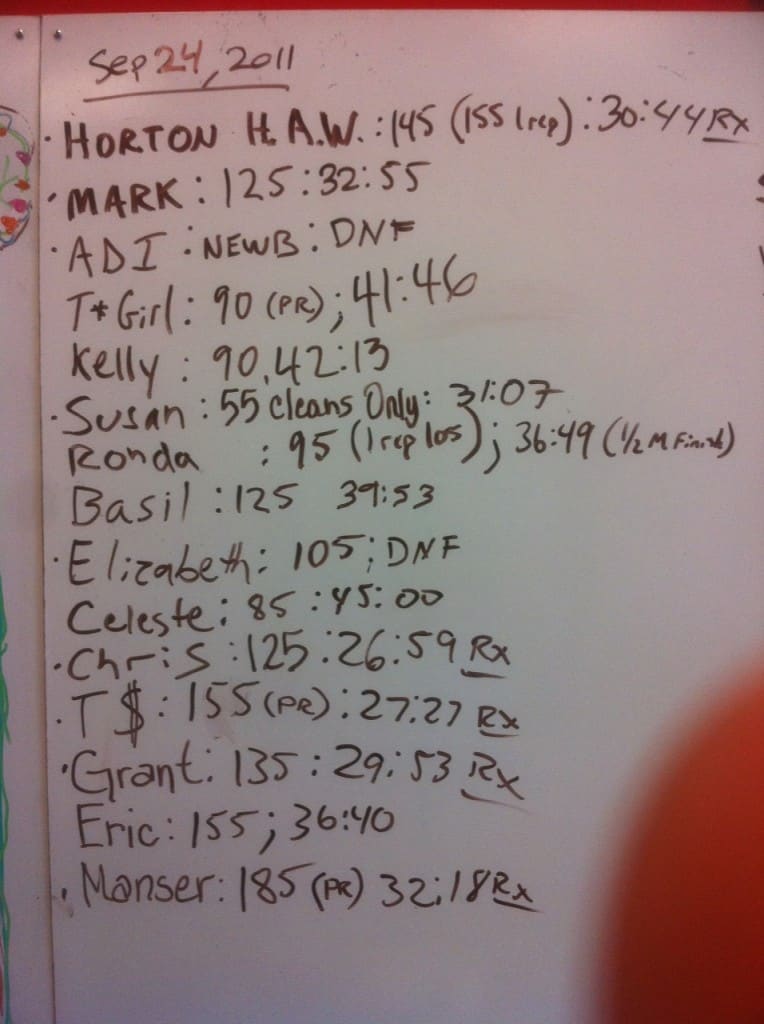 Sep 24, 2011
· HORTON H.A.W. : 145 (155 1 rep) : 30:44 Rx
· MARK : 125 : 32:55
· ADI : NEWB : DNF
T* Girl : 90 (PR) ; 41:46
Kelly : 90, 42:13
· Susan : 55 Cleans Only : 31:07
Ronda : 95 (1 rep 105) ; 36:49 (1/2 M Finish)
Basil : 125 39:53
· Elizabeth : 105 ; DNF
Celeste : 85 : 45:00
· Chris : 125 : 26:59 Rx
· T$ : 155 (PR) : 27:27 Rx
· Grant : 135 : 29:53 Rx
Eric : 155 ; 36:40
· Manser : 185 (PR) 32:18 Rx